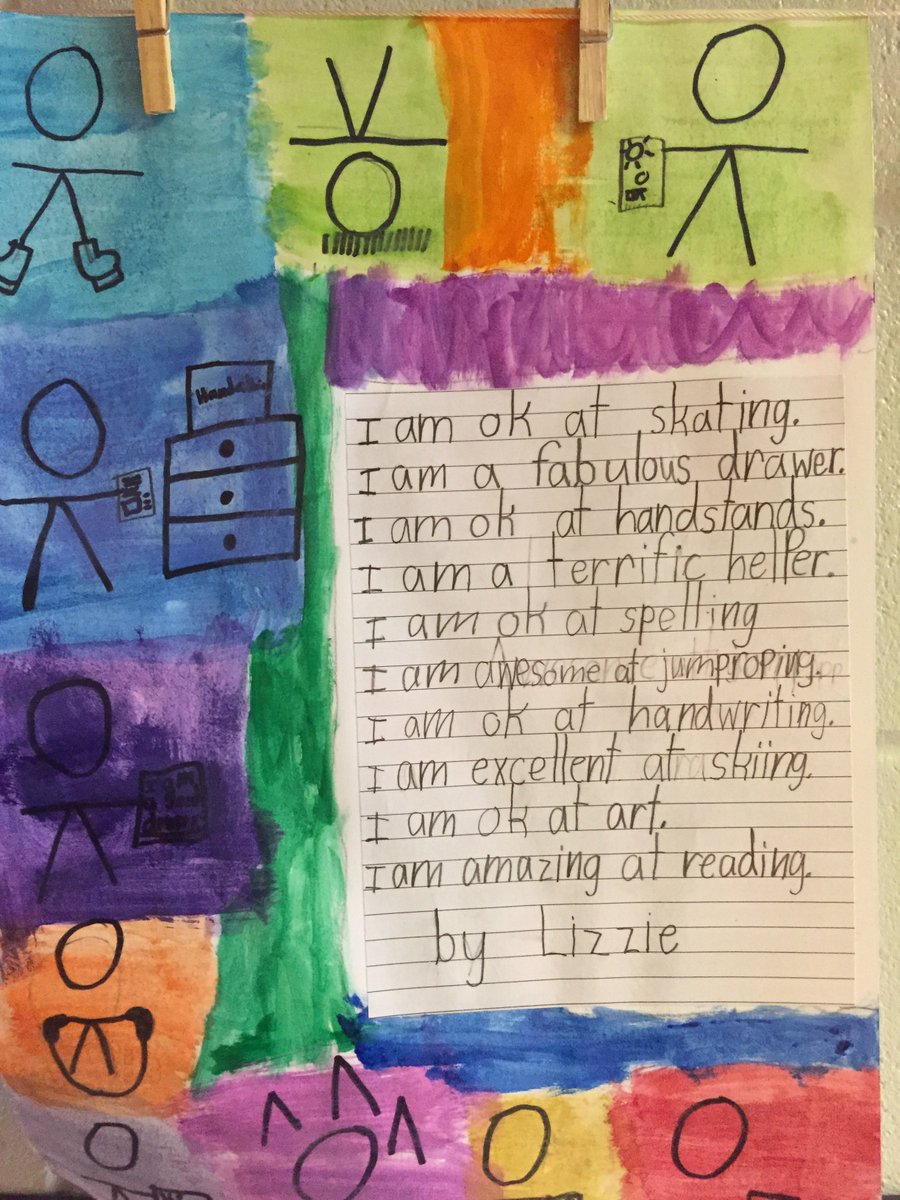 I am ok at skating.
I am a fabulous drawer.
I am ok at handstands.
I am a terrific helper.
I am ok at spelling
I am awesome at jumproping.
I am ok at handwriting.
I am excellent at skiing.
I am ok at art.
I am amazing at reading.
by Lizzie